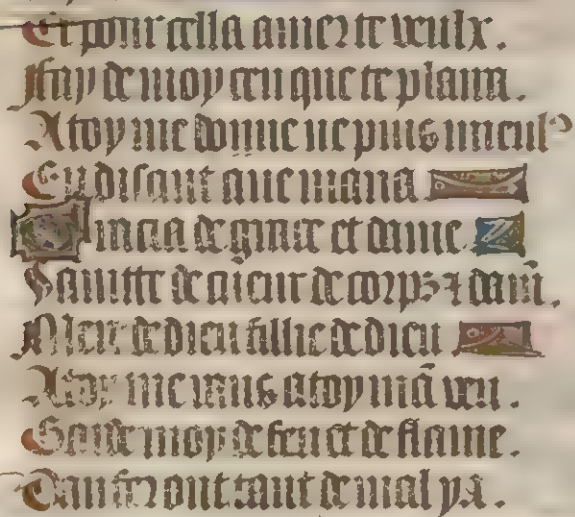 Et pour cella amer te veulx .
Fay de moy ceu que te plaira .
A toy me donne ne puis mieulx
En disant ave maria
Gracia de grace et dame .
Saintte de cueur de corps ⁊ dam̄ .
Mere de dieu fillie de dieu
A toy me rans a toy mā veu .
Garde moy de feu et de flame .
Danfer ont tant de mal ya .